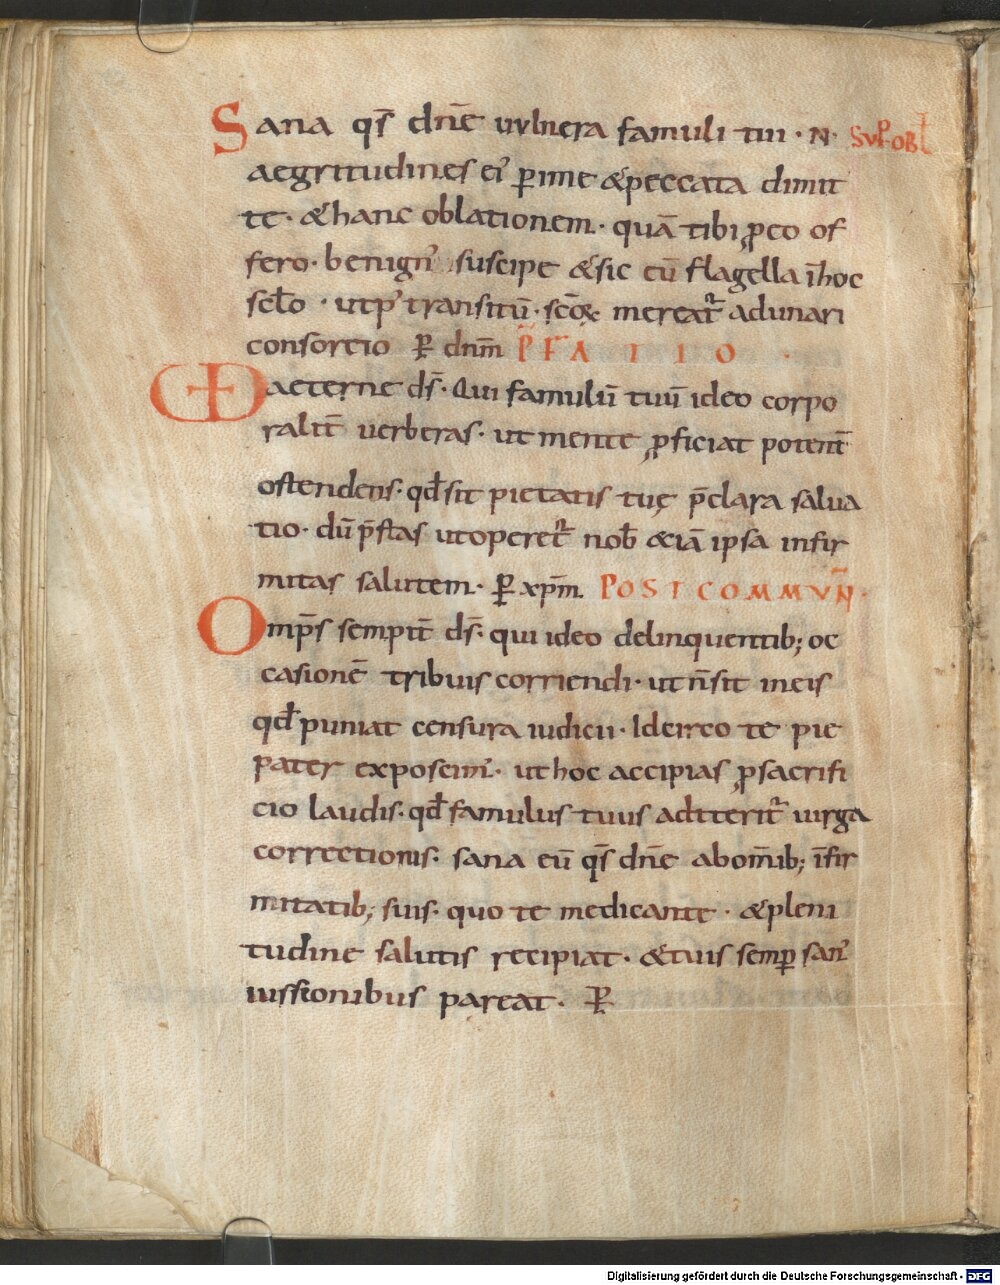 Sana qs̄ dn̄e vvlnera famuli tui · N· SVP̄ OBL̄
aegritudines ei' ꝑime &peccata dimit
te· &hanc oblationem· quā tibi ꝓeo of
fero· benign' suscipe &sic eū flagella īhoc
sclo · utp' transitū· scōꝝ mereat̄ adunari
consortio ꝑ dnm̄ P̄FATIO ·
VD aeterne ds̄· Qui famulū tuū ideo corpo
ralit̄ verberas· ut mente ꝓficiat potent̄
ostendens· qd̄ sit pietatis tuę p̄clara salua
tio· dū p̄stas ut operet̄ nob̄ &iā ipsa infir
mitas salutem· ꝑ xpm̄ POSTCOMMVÑ·
Omp̄s sempit̄ ds̄· qui ideo delinquentib; oc
casionē tribuis corriendi· ut n̄ sit in eis
qd̄ puniat censura iudicii· Idcirco te pie
pater exposcim'· ut hoc accipias ꝓsacrifi
cio laudis· qd̄ famulus tuus adtterit̄ uirga
correctionis· sana eū qs̄ dn̄e abom̄ib; īfir
mitatib; suis· quo te medicante · &pleni
tudine salutis recipiat· &tuis semꝑ san'
iussionibus pareat· ꝑ
Digitalisierung gefördert durch die Deutsche Forschungsgemeinschaft - DFG